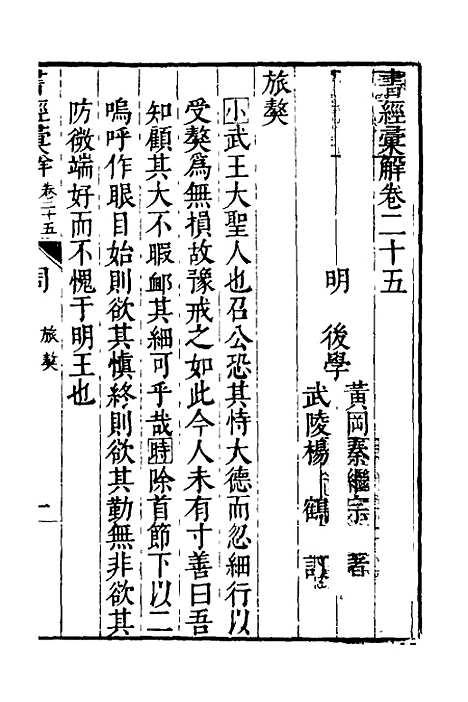 書經彙解卷二十五
明 後學
黃岡秦繼宗 著
武陵楊 鶴 訂
旅獒
小武王大聖人也召公恐其恃大德而忽細行以
受獒爲無損故豫戒之如此今人未有寸善曰吾
知顧其大不暇卹其細可乎哉時除首節下以二
嗚呼作眼目始則欲其愼終則欲其勤無非欲其
防微端好而不愧于明王也
書經彙解 卷二十五 周 旅獒 一